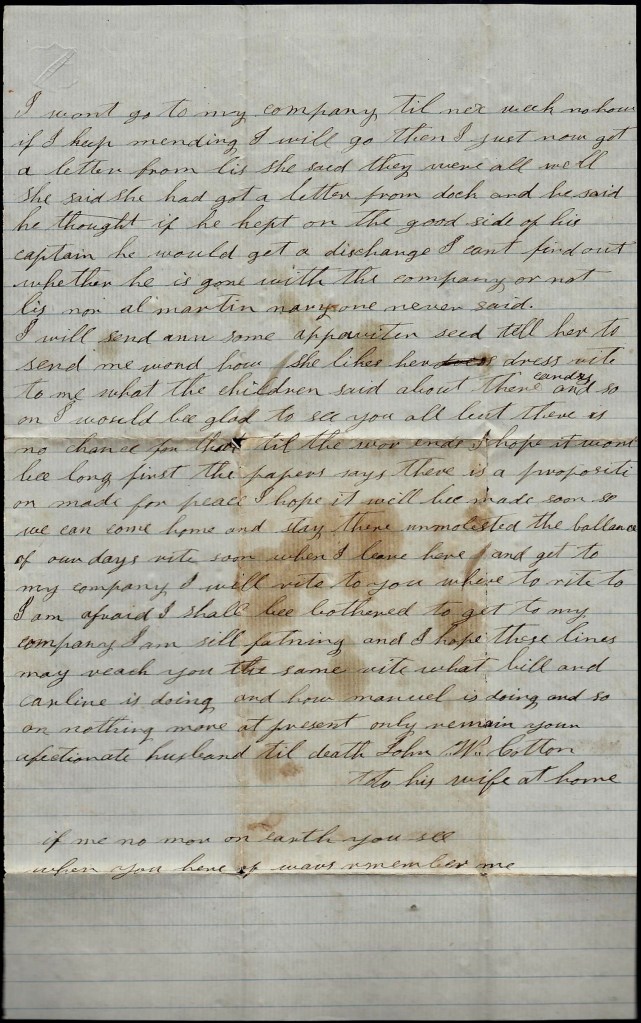 I wont go to my company til nex week nohow
if I keep mending I will go then I just now got
a letter from lis she said they were all well
she said she had got a letter from doch and he said
he thought if he kept on the good side of his
captain he would get a discharge I cant find out
whether he is gone with the company or not
lis nor al martin nary one never said.
I will send ann some appaviten seed tell her to
send me word how she likes her dress rite
to me what the children said about there candy and so
on I would bee glad to see you all but there is
no chance for that til the wor ends I hope it wont
bee long first the papers says there is a propositi
on made for peace I hope it will bee made soon so
we can come home and stay there unmolested the ballance
of our days rite soon when I leave here and get to
my company I will rite to you where to rite to
I am afraid I shall bee bothered to get to my
company I am sill fatning and I hope these lines
may reach you the same rite what bill and
carline is doing and how manuel is doing and so
on nothing more at present only remain your
afectionate husband til death John W. Cotton
to his wife at home
if me no mor on earth you see
when you here of wars rmember me